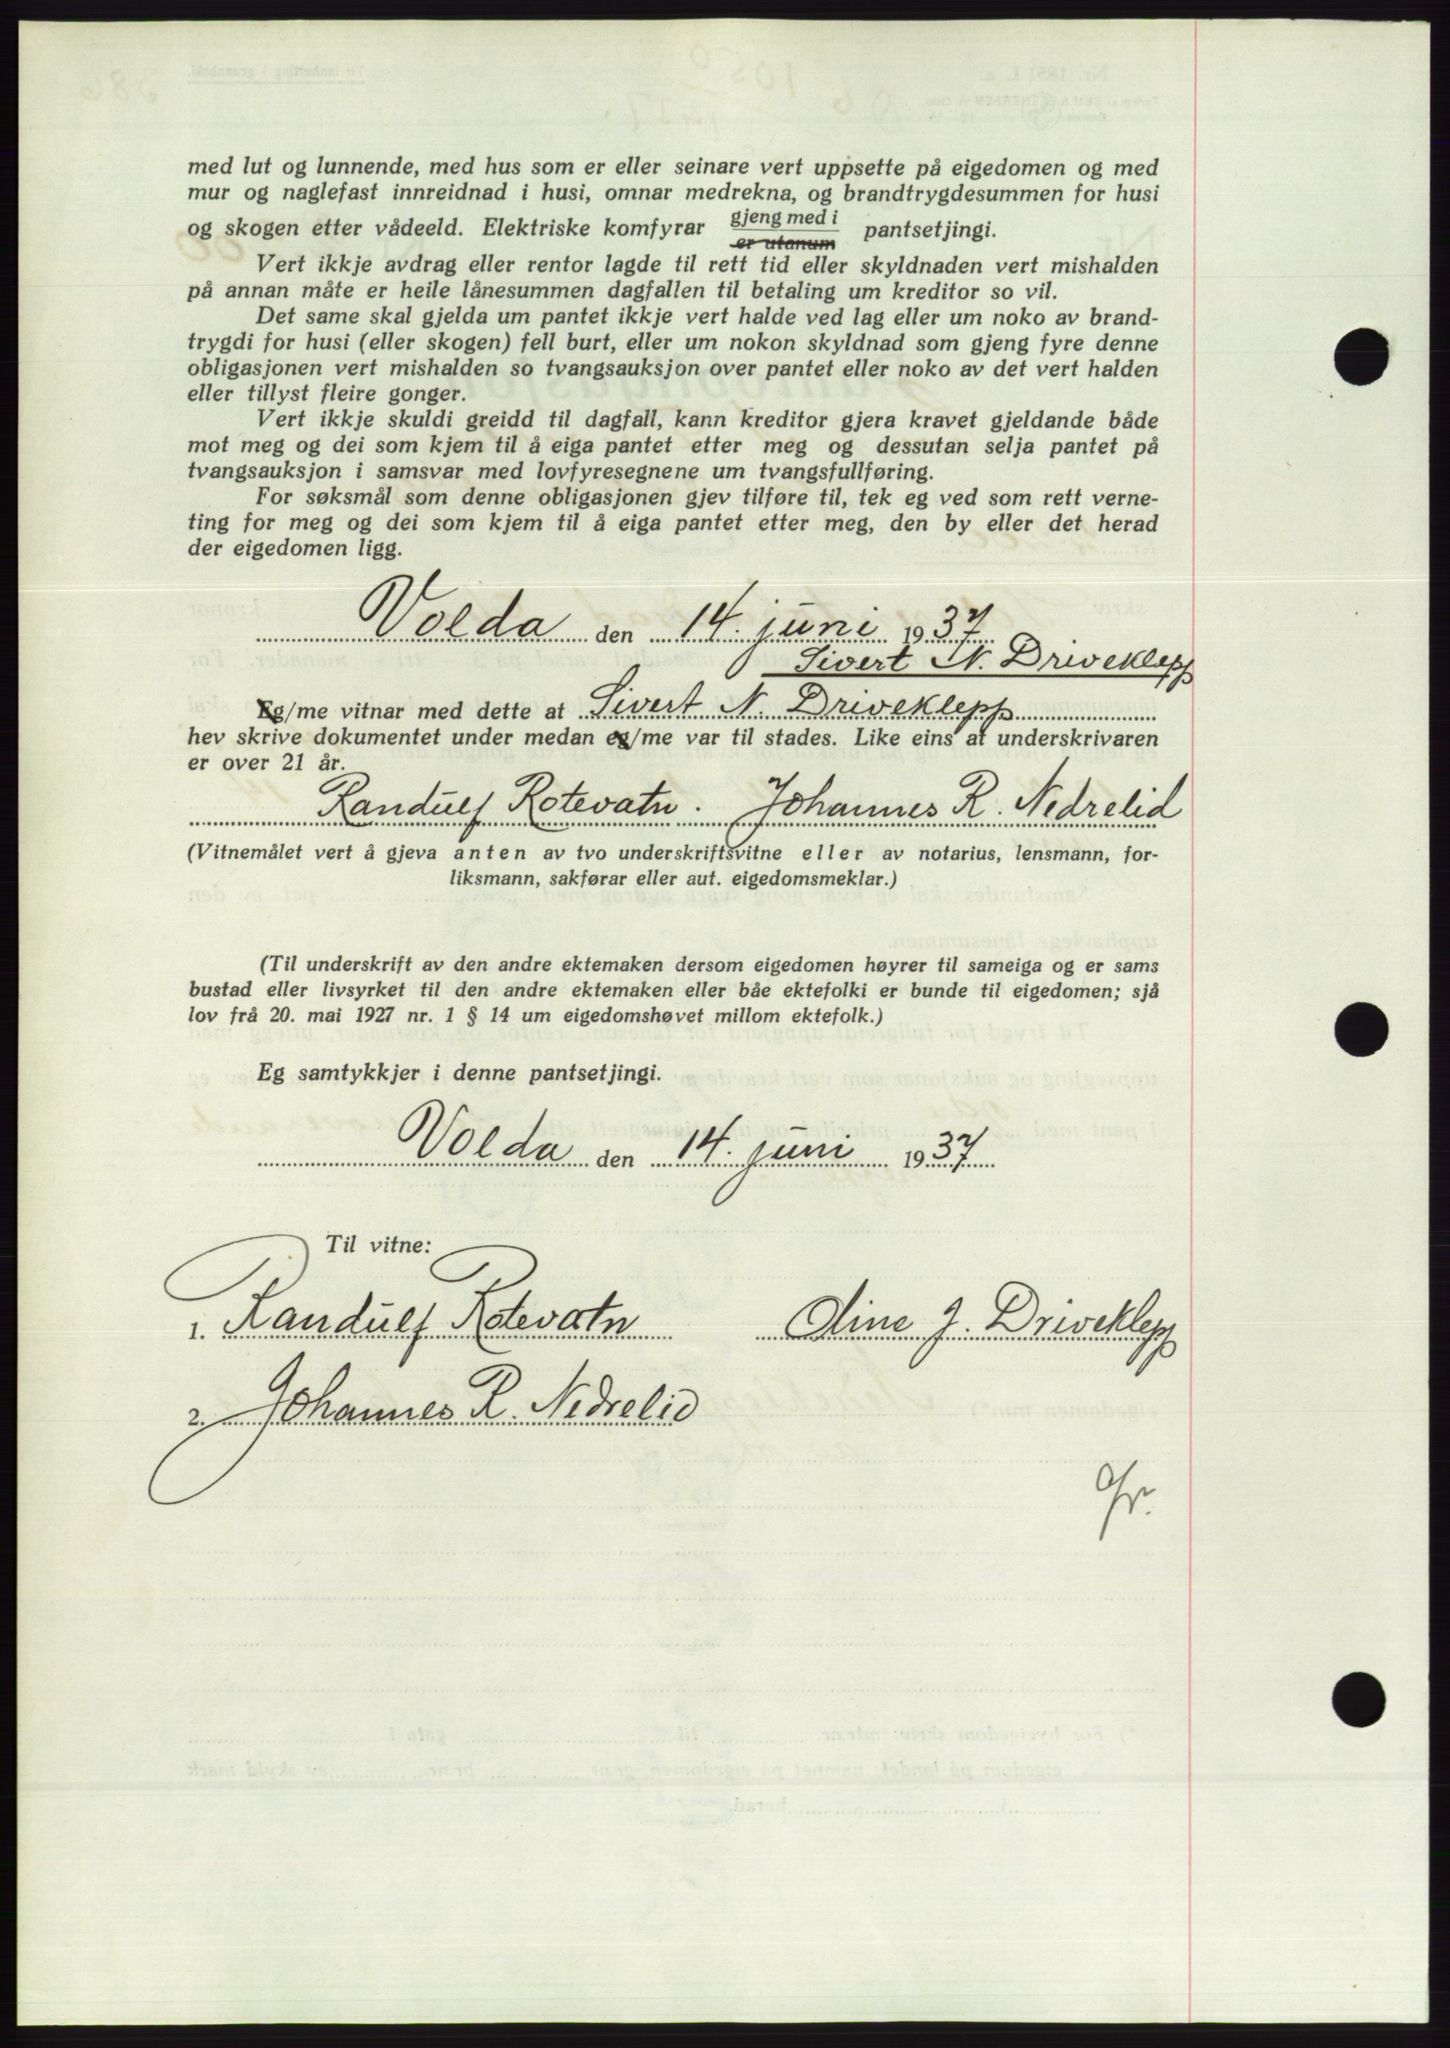 med lut og lunnende, med hus som er eller seinare vert uppsette på eigedomen og med
mur og naglefast innreidnad i husi, omnar medrekna, og brandtrygdesummen for husi
og skogen etter vådeeld. Elektriske komfyrar gjeng med i pantsetjingi.
er utanum
Vert ikkje avdrag eller rentor lagde til rett tid eller skyldnaden vert mishalden
på annan måte er heile lånesummen dagfallen til betaling um kreditor so vil.
Det same skal gjelda um pantet ikkje vert halde ved lag eller um noko av brand-
trygdi for husi (eller skogen) fell burt, eller um nokon skyldnad som gjeng fyre denne
obligasjonen vert mishalden so tvangsauksjon over pantet eller noko av det vert halden
eller tillyst fleire gonger.
Vert ikkje skuldi greidd til dagfall, kann kreditor gjera kravet gjeldande både
mot meg og dei som kjem til å eiga pantet etter meg og dessutan selja pantet på
tvangsauksjon i samsvar med lovfyresegnene um tvangsfullføring.
For søksmål som denne obligasjonen gjev tilføre til, tek eg ved som rett verne-
ting for meg og dei som kjem til å eiga pantet etter meg, den by eller det herad
der eigedomen ligg.
Volda den 14. juni 1937
Sivert N. Driveklepp
Eg/me vitnar med dette at Sivert N. Driveklepp
hev skrive dokumentet under medan eg/me var til stades. Like eins at underskrivaren
er over 21 år.
Randulf Rotevatn. Johannes R. Nedrelid
(Vitnemålet vert å gjeva anten av tvo underskriftsvitne eller av notarius, lensmann, for-
liksmann, sakførar eller aut. eigedomsmeklar.)
(Til underskrift av den andre ektemaken dersom eigedomen høyrer til sameiga og er sams
bustad eller livsyrket til den andre ektemaken eller båe ektefolki er bunde til eigedomen; sjå
lov frå 20. mai 1927 nr. 1 § 14 um eigedomshøvet millom ektefolk.)
Eg samtykkjer i denne pantsetjingi.
Volda den 14. juni 1937
Til vitne:
1. Randulf Rotevatn Oline J. Driveklepp
2. Johannes R. Nedrelid